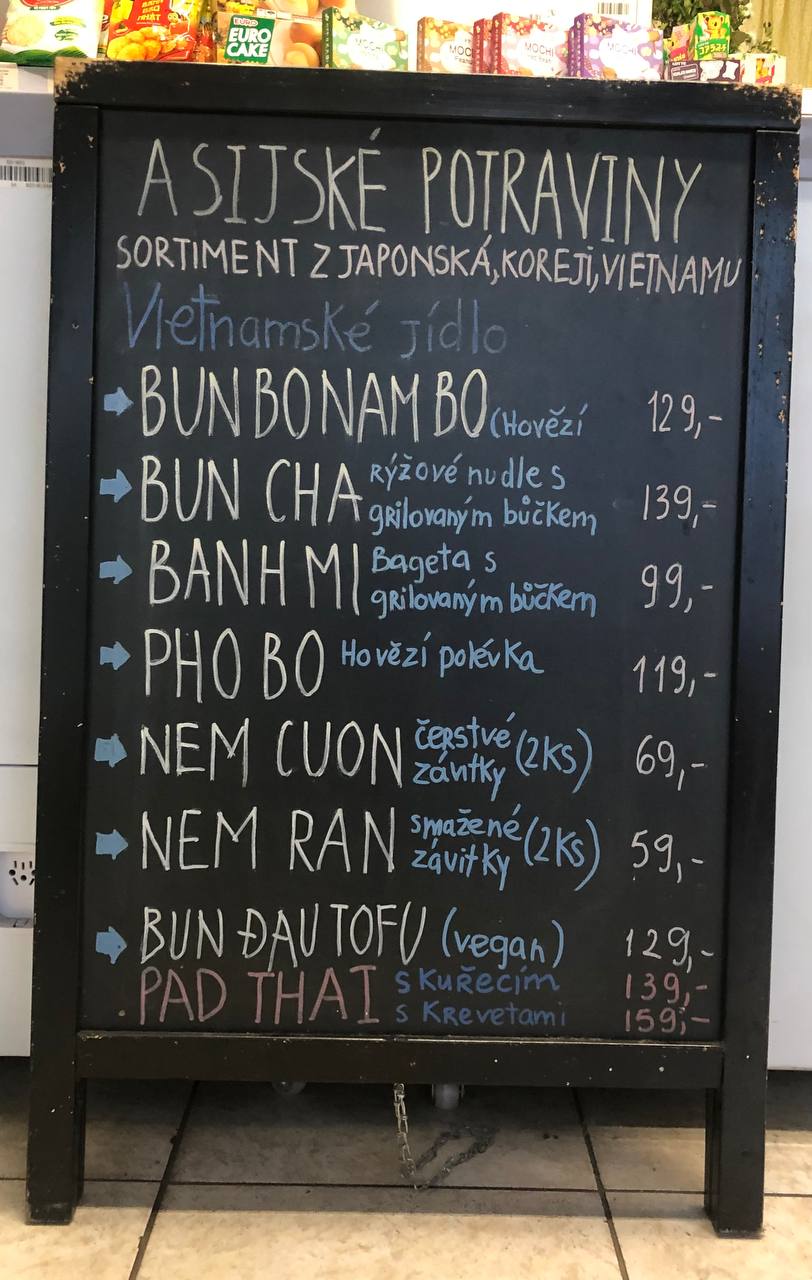 EURO
EURO
CAKE
MOCHI
MOCHI
MOCHI
ASIJSKÉ POTRAVINY
SORTIMENT Z JAPONSKÁ, KOREJI, VIETNAMU
Vietnamské jídlo
BUN BO NAM BO (Hovězí 129,-
BUN CHA Rýžové nudle s
grilovaným bůčkem 139,-
BANH MI Bageta s
grilovaným bůčkem 99,-
PHO BO Hovězí polévka 119,-
NEM CUON čerstvé
závitky (2Ks) 69,-
NEM RAN smažené
závitky (2Ks) 59,-
BUN ĐAU TOFU (vegan) 129,-
PAD THAI s Kuřecím 139,-
s Krevetami 159,-